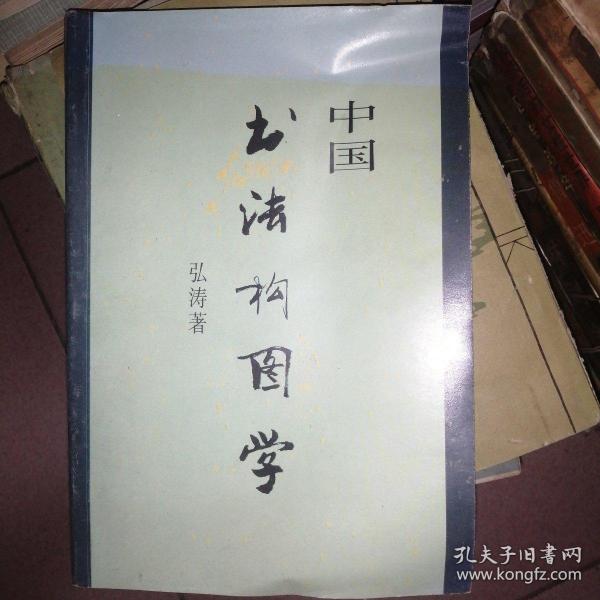 中国
书法构图学
弘涛著
孔夫子旧书网
www.kongfz.com